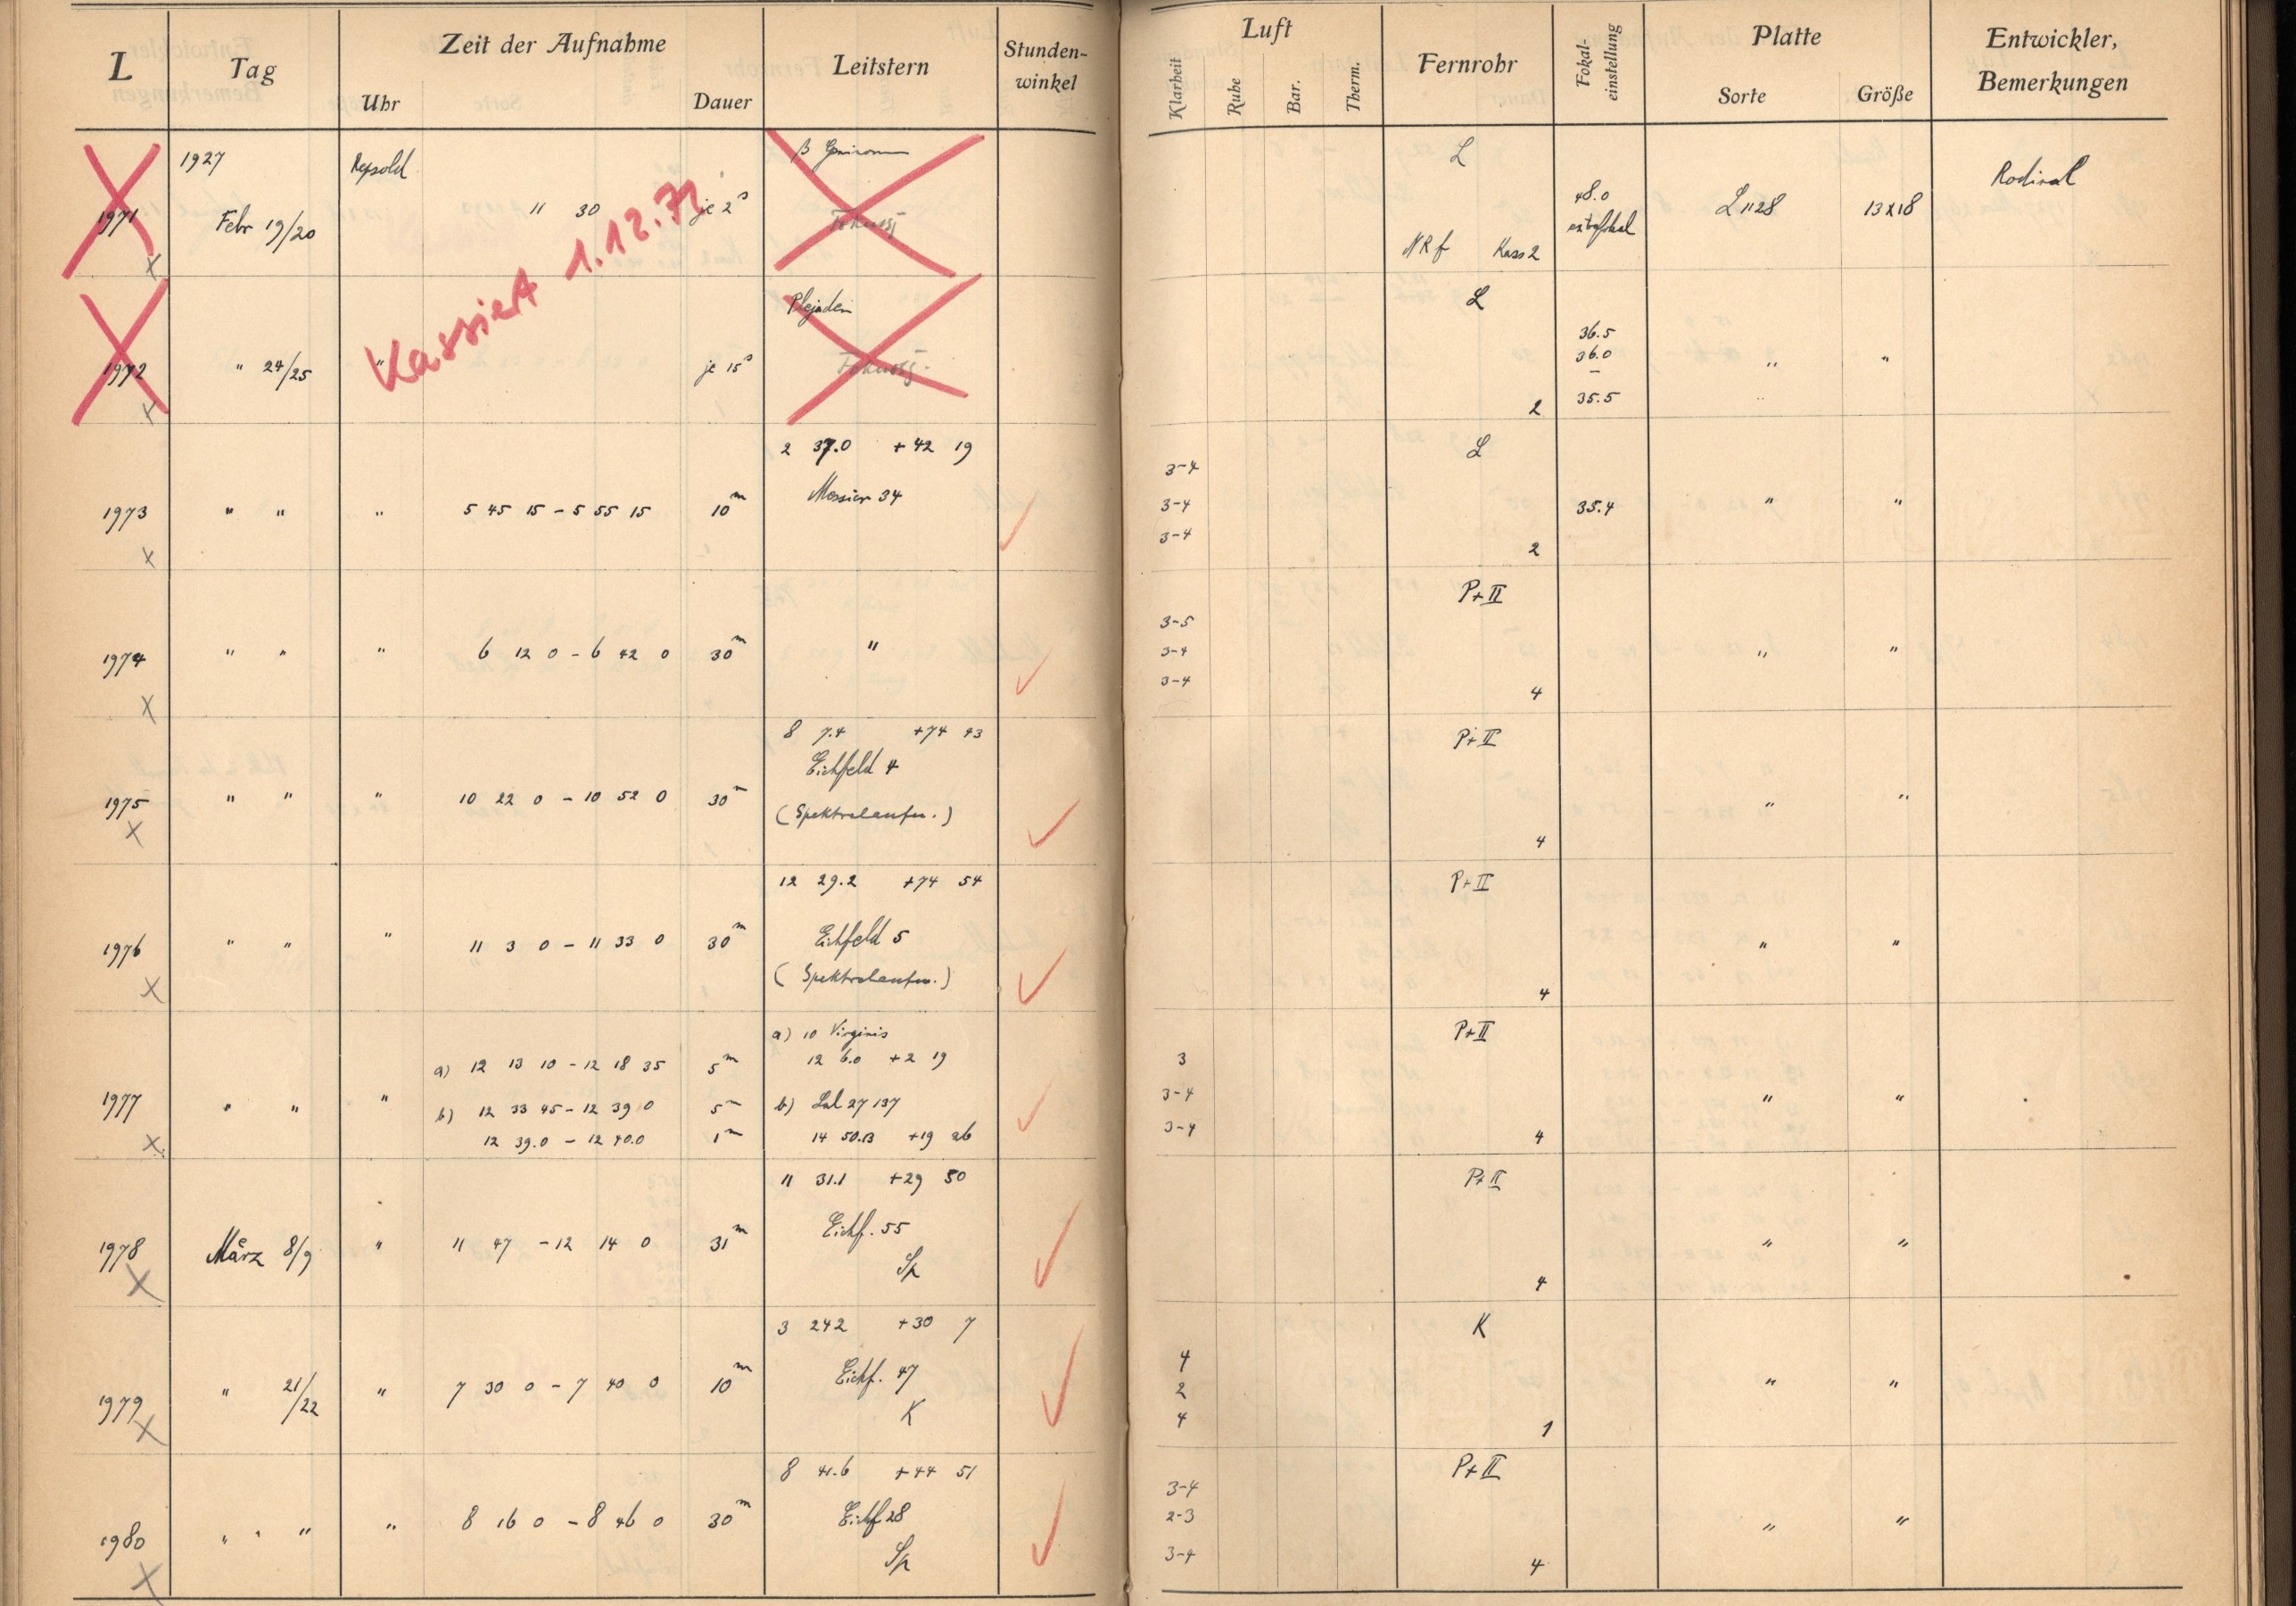 L Tag Zeit der Aufnahme Leitstern Stunden-winkel Luft Fernrohr Fokal-einstellung Platte Entwickler, Bemerkungen
Uhr Dauer Klarheit Ruhe Bar. Therm. Sorte Größe
1927 Repsold β L Rodinal
1971 Febr 19/20 11 30 je 2ˢ Fokussg 48.0 extrafokal L 1128 13x18
x NRf Kass 2
Kassiert 1.12.
Plejaden L
36.5
1972 " 24/25 " je 15ˢ Fokussg. 36.0 " "
x 2 35.5
2 37.0 +42 19 L
3-4
Messier 34
1973 " " " 5 45 15 - 5 55 15 10ᵐ 3-4 35.4 " "
3-4
x 2
P+II
3-5
1974 " " " 6 12 0 - 6 42 0 30ᵐ " 3-4 " "
3-4
x 4
8 7.4 +74 43 P+II
Eichfeld 4
1975 " " " 10 22 0 - 10 52 0 30ᵐ " "
(Spektralaufn.)
x 4
12 29.2 +74 54 P+II
1976 " " " 11 3 0 - 11 33 0 30ᵐ Eichfeld 5 " "
(Spektralaufn.)
x 4
a) 10 Virginis P+II
a) 12 13 10 - 12 18 35 5ᵐ 12 6.0 +2 19 3
1977 " " " b) 12 33 45 - 12 39 0 5ᵐ b) Lal 27137 3-4 " "
x 12 39.0 - 12 40.0 1ᵐ 14 50.13 +19 26 3-4 4
11 31.1 +29 50 P+II
1978 März 8/9 " 11 47 - 12 14 0 31ᵐ Eichf. 55 " "
Sp
x 4
3 24 2 +30 7 K
4
1979 " 21/22 " 7 30 0 - 7 40 0 10ᵐ Eichf. 47 2 " "
K 4
x 1
8 41.6 +44 51 P+II
3-4
1980 " " " 8 16 0 - 8 46 0 30ᵐ Eichf 28 2-3 " "
Sp 3-4
x 4